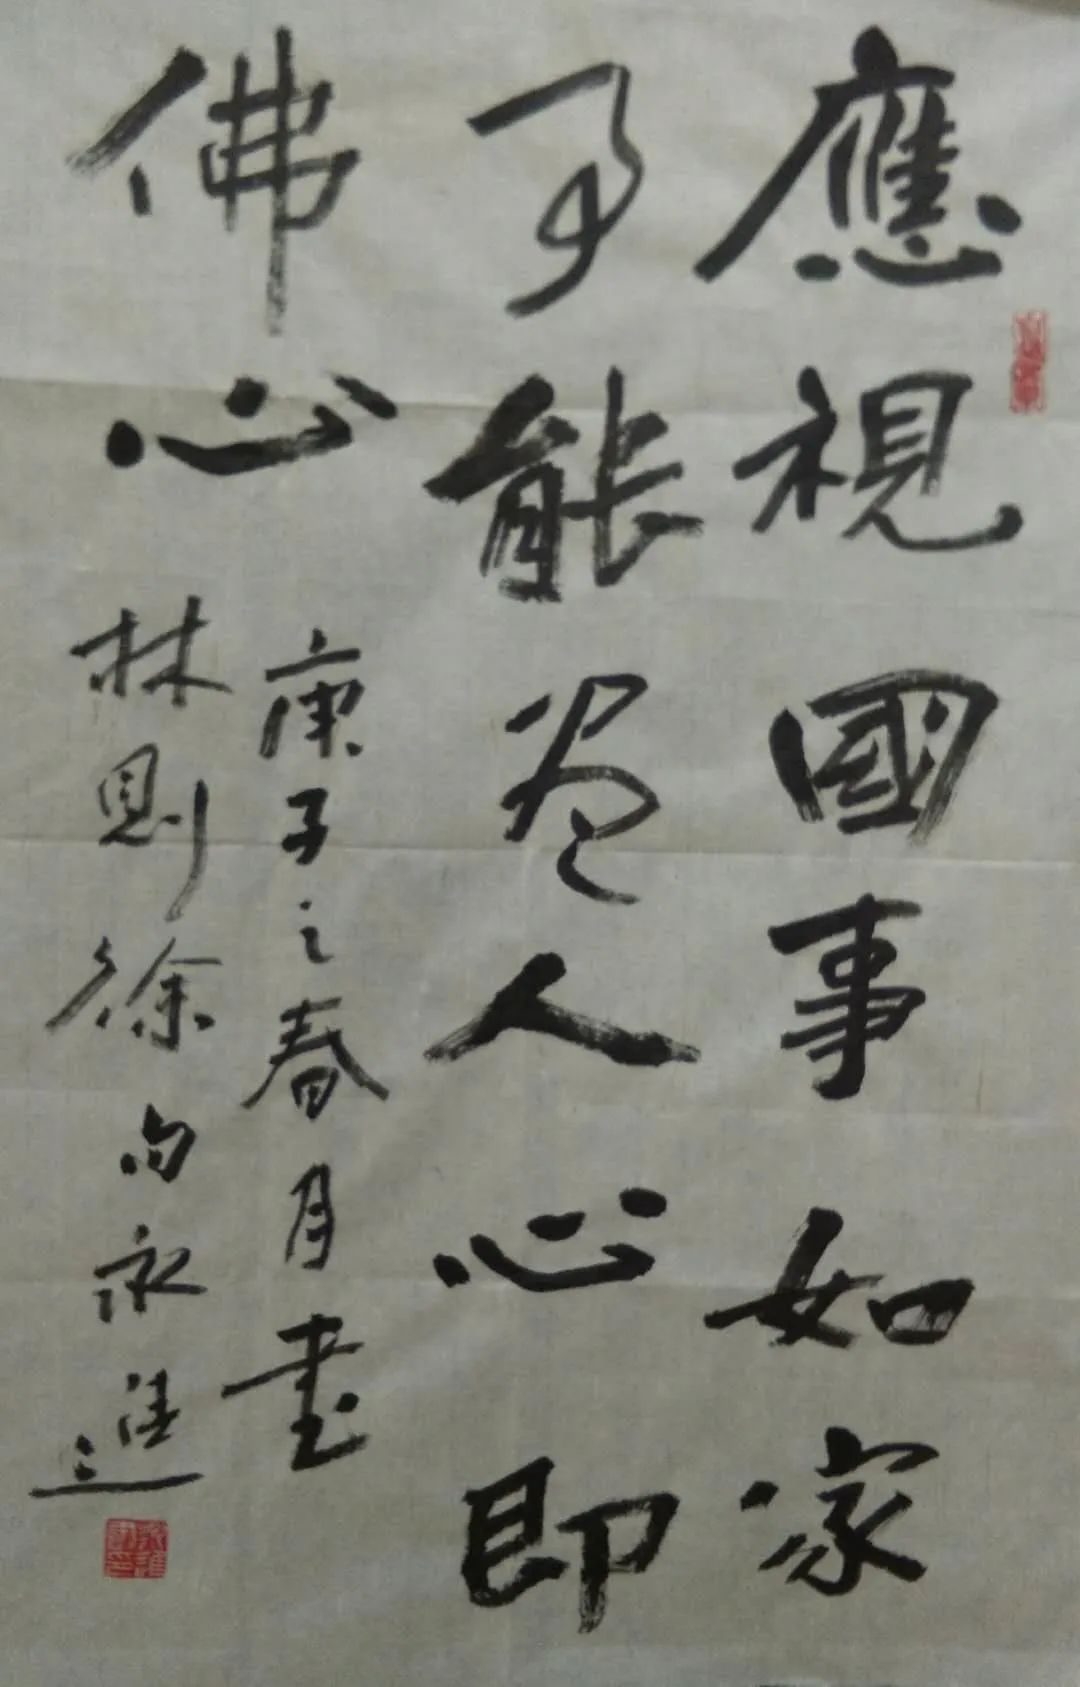 應視國事如家
事能盡人心即
佛心
庚子之春月書
林則徐句永進